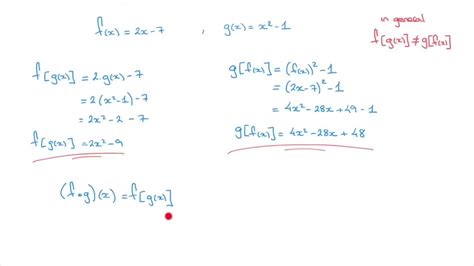 f(x) = 2x-7 , g(x) = x²-1
in general
f[g(x)] ≠ g[f(x)]
f[g(x)] = 2·g(x)-7
= 2(x²-1)-7
= 2x²-2-7
f[g(x)] = 2x²-9
g[f(x)] = (f(x))²-1
= (2x-7)²-1
= 4x²-28x+49-1
g[f(x)] = 4x²-28x+48
(f∘g)(x) = f[g(x)]